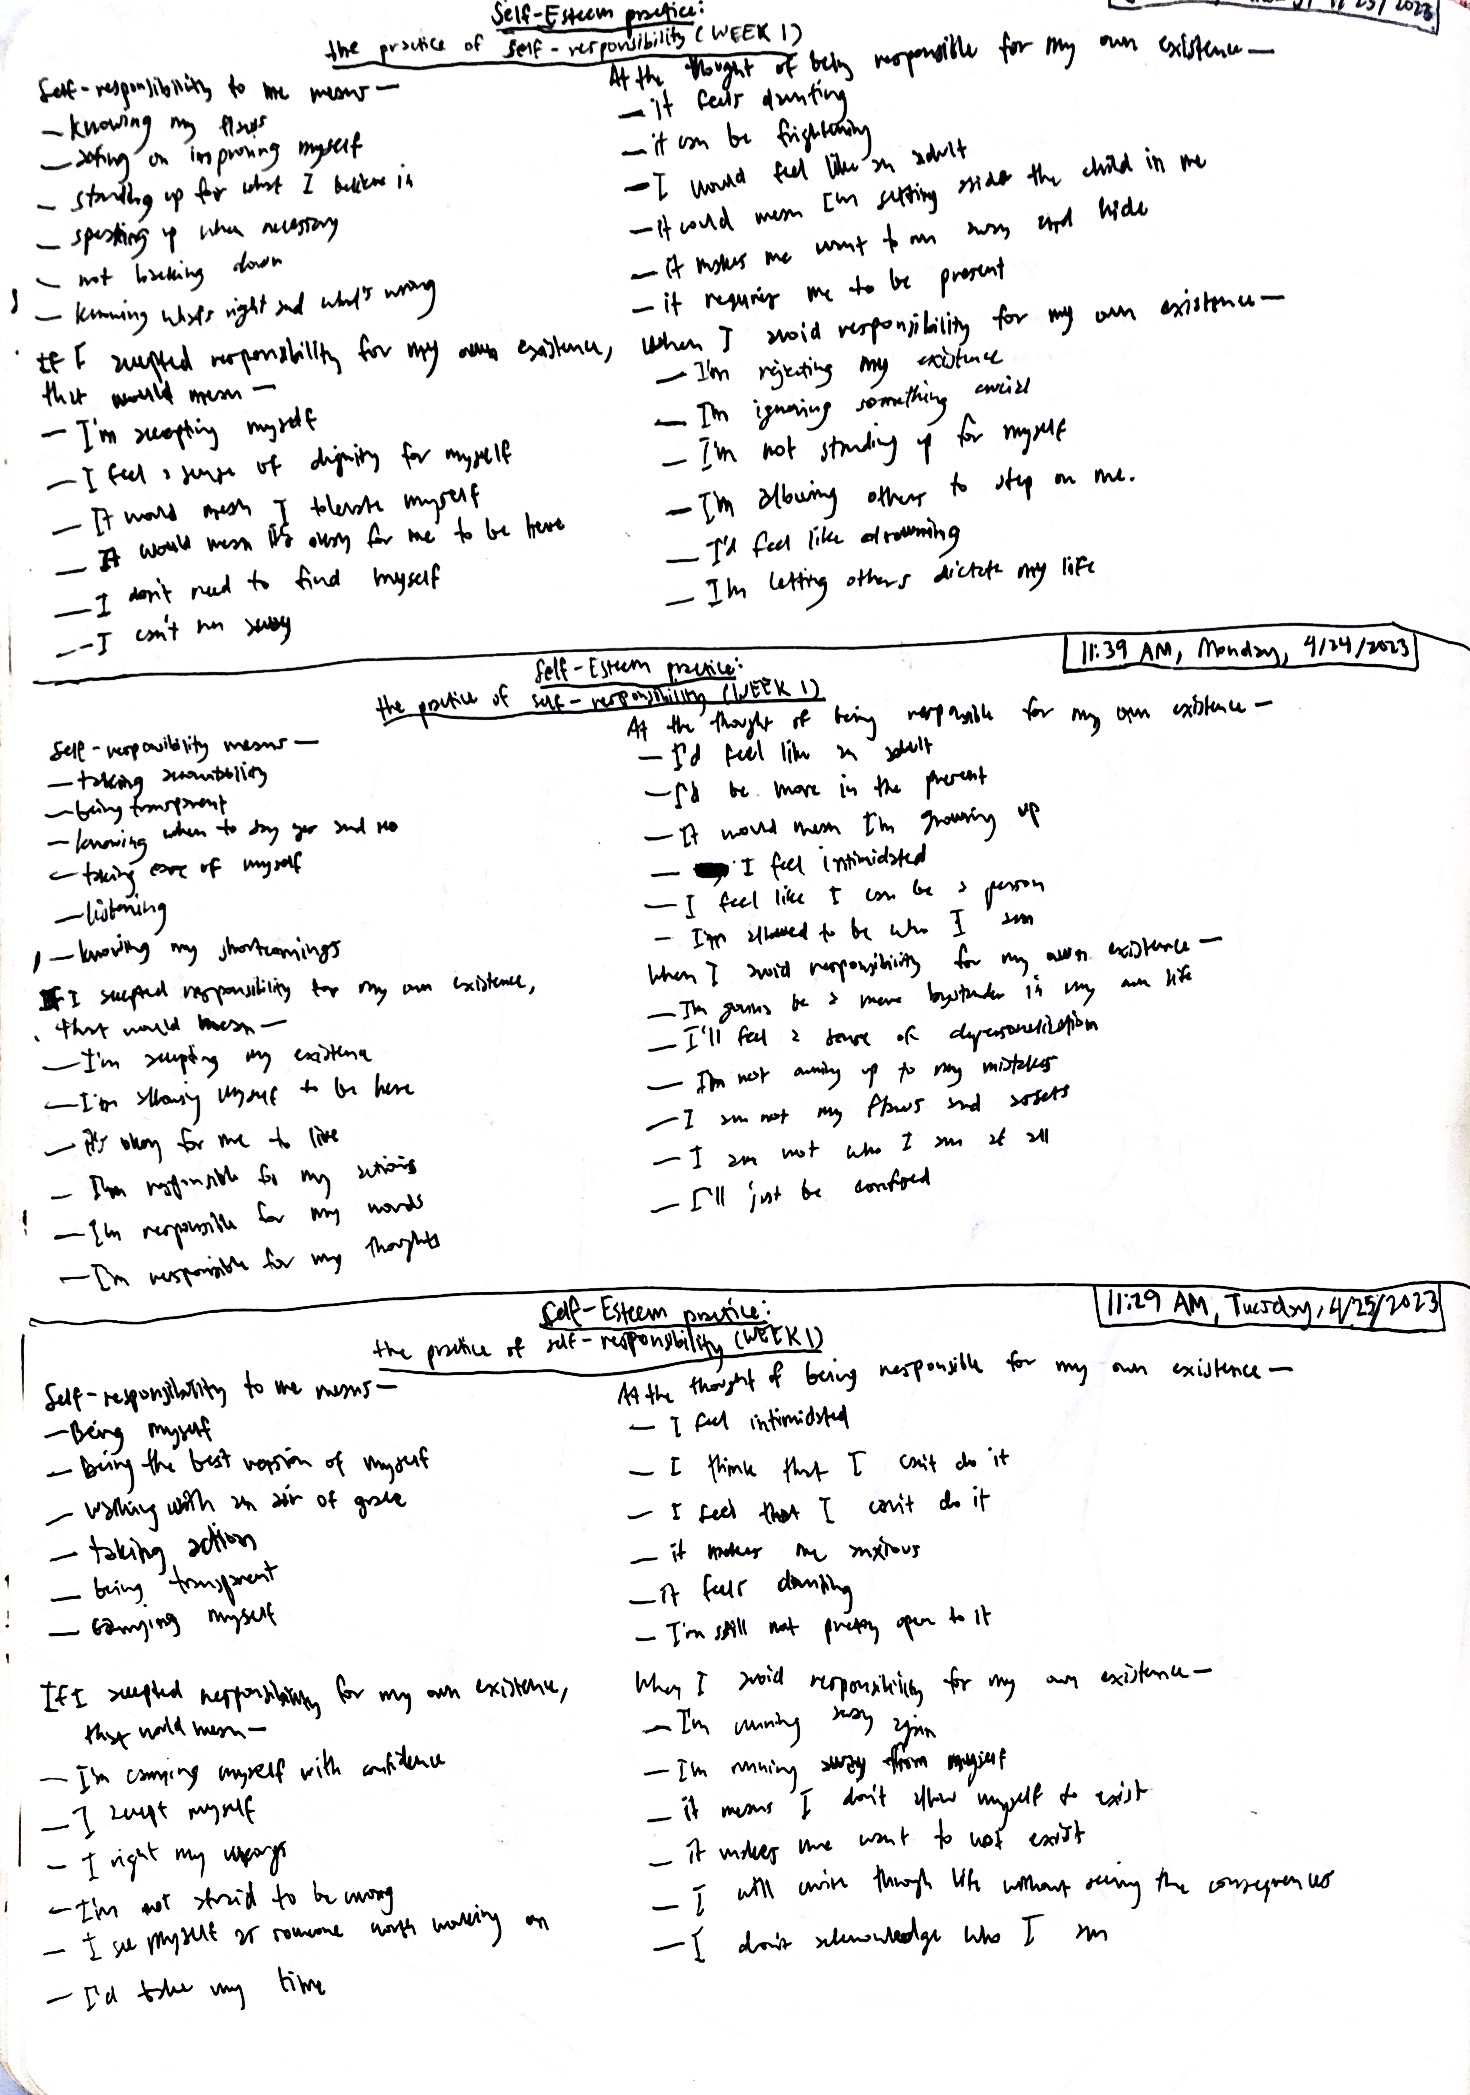 Self-Esteem practice:
the practice of self-responsibility (WEEK 1)
Self-responsibility to me means—
— knowing my flaws
— acting on improving myself
— standing up for what I believe in
— speaking up when necessary
— not backing down
— knowing what's right and what's wrong
If I accepted responsibility for my own existence,
that would mean—
— I'm accepting myself
— I feel a sense of dignity for myself
— It would mean I tolerate myself
— It would mean it's okay for me to be here
— I don't need to find myself
— I can't run away
At the thought of being responsible for my own existence—
— it feels daunting
— it can be frightening
— I would feel like an adult
— it could mean I'm setting aside the child in me
— it makes me want to run away and hide
— it requires me to be present
When I avoid responsibility for my own existence—
— I'm rejecting my existence
— I'm ignoring something crucial
— I'm not standing up for myself
— I'm allowing others to step on me.
— I'd feel like drowning
— I'm letting others dictate my life
11:39 AM, Monday, 4/24/2023
Self-Esteem practice:
the practice of self-responsibility (WEEK 1)
Self-responsibility means—
— taking accountability
— being transparent
— knowing when to say yes and no
— taking care of myself
— listening
— knowing my shortcomings
If I accepted responsibility for my own existence,
that would mean—
— I'm accepting my existence
— I'm allowing myself to be here
— it's okay for me to live
— I'm responsible for my actions
— I'm responsible for my words
— I'm responsible for my thoughts
At the thought of being responsible for my own existence—
— I'd feel like an adult
— I'd be more in the present
— It would mean I'm growing up
— I feel intimidated
— I feel like I can be a person
— I'm allowed to be who I am
When I avoid responsibility for my own existence—
— I'm gonna be a mere bystander in my own life
— I'll feel a sense of depersonalization
— I'm not owning up to my mistakes
— I am not my flaws and assets
— I am not who I am at all
— I'll just be confused
11:29 AM, Tuesday, 4/25/2023
Self-Esteem practice:
the practice of self-responsibility (WEEK 1)
Self-responsibility to me means—
— Being myself
— Being the best version of myself
— walking with an air of grace
— taking action
— being transparent
— carrying myself
If I accepted responsibility for my own existence,
that would mean—
— I'm carrying myself with confidence
— I accept myself
— I right my wrongs
— I'm not afraid to be wrong
— I see myself as someone worth working on
— I'd take my time
At the thought of being responsible for my own existence—
— I feel intimidated
— I think that I can't do it
— I feel that I can't do it
— it makes me anxious
— it feels daunting
— I'm still not pretty open to it
When I avoid responsibility for my own existence—
— I'm running away again
— I'm running away from myself
— it means I don't allow myself to exist
— it makes me want to not exist
— I will cruise through life without seeing the consequences
— I don't acknowledge who I am